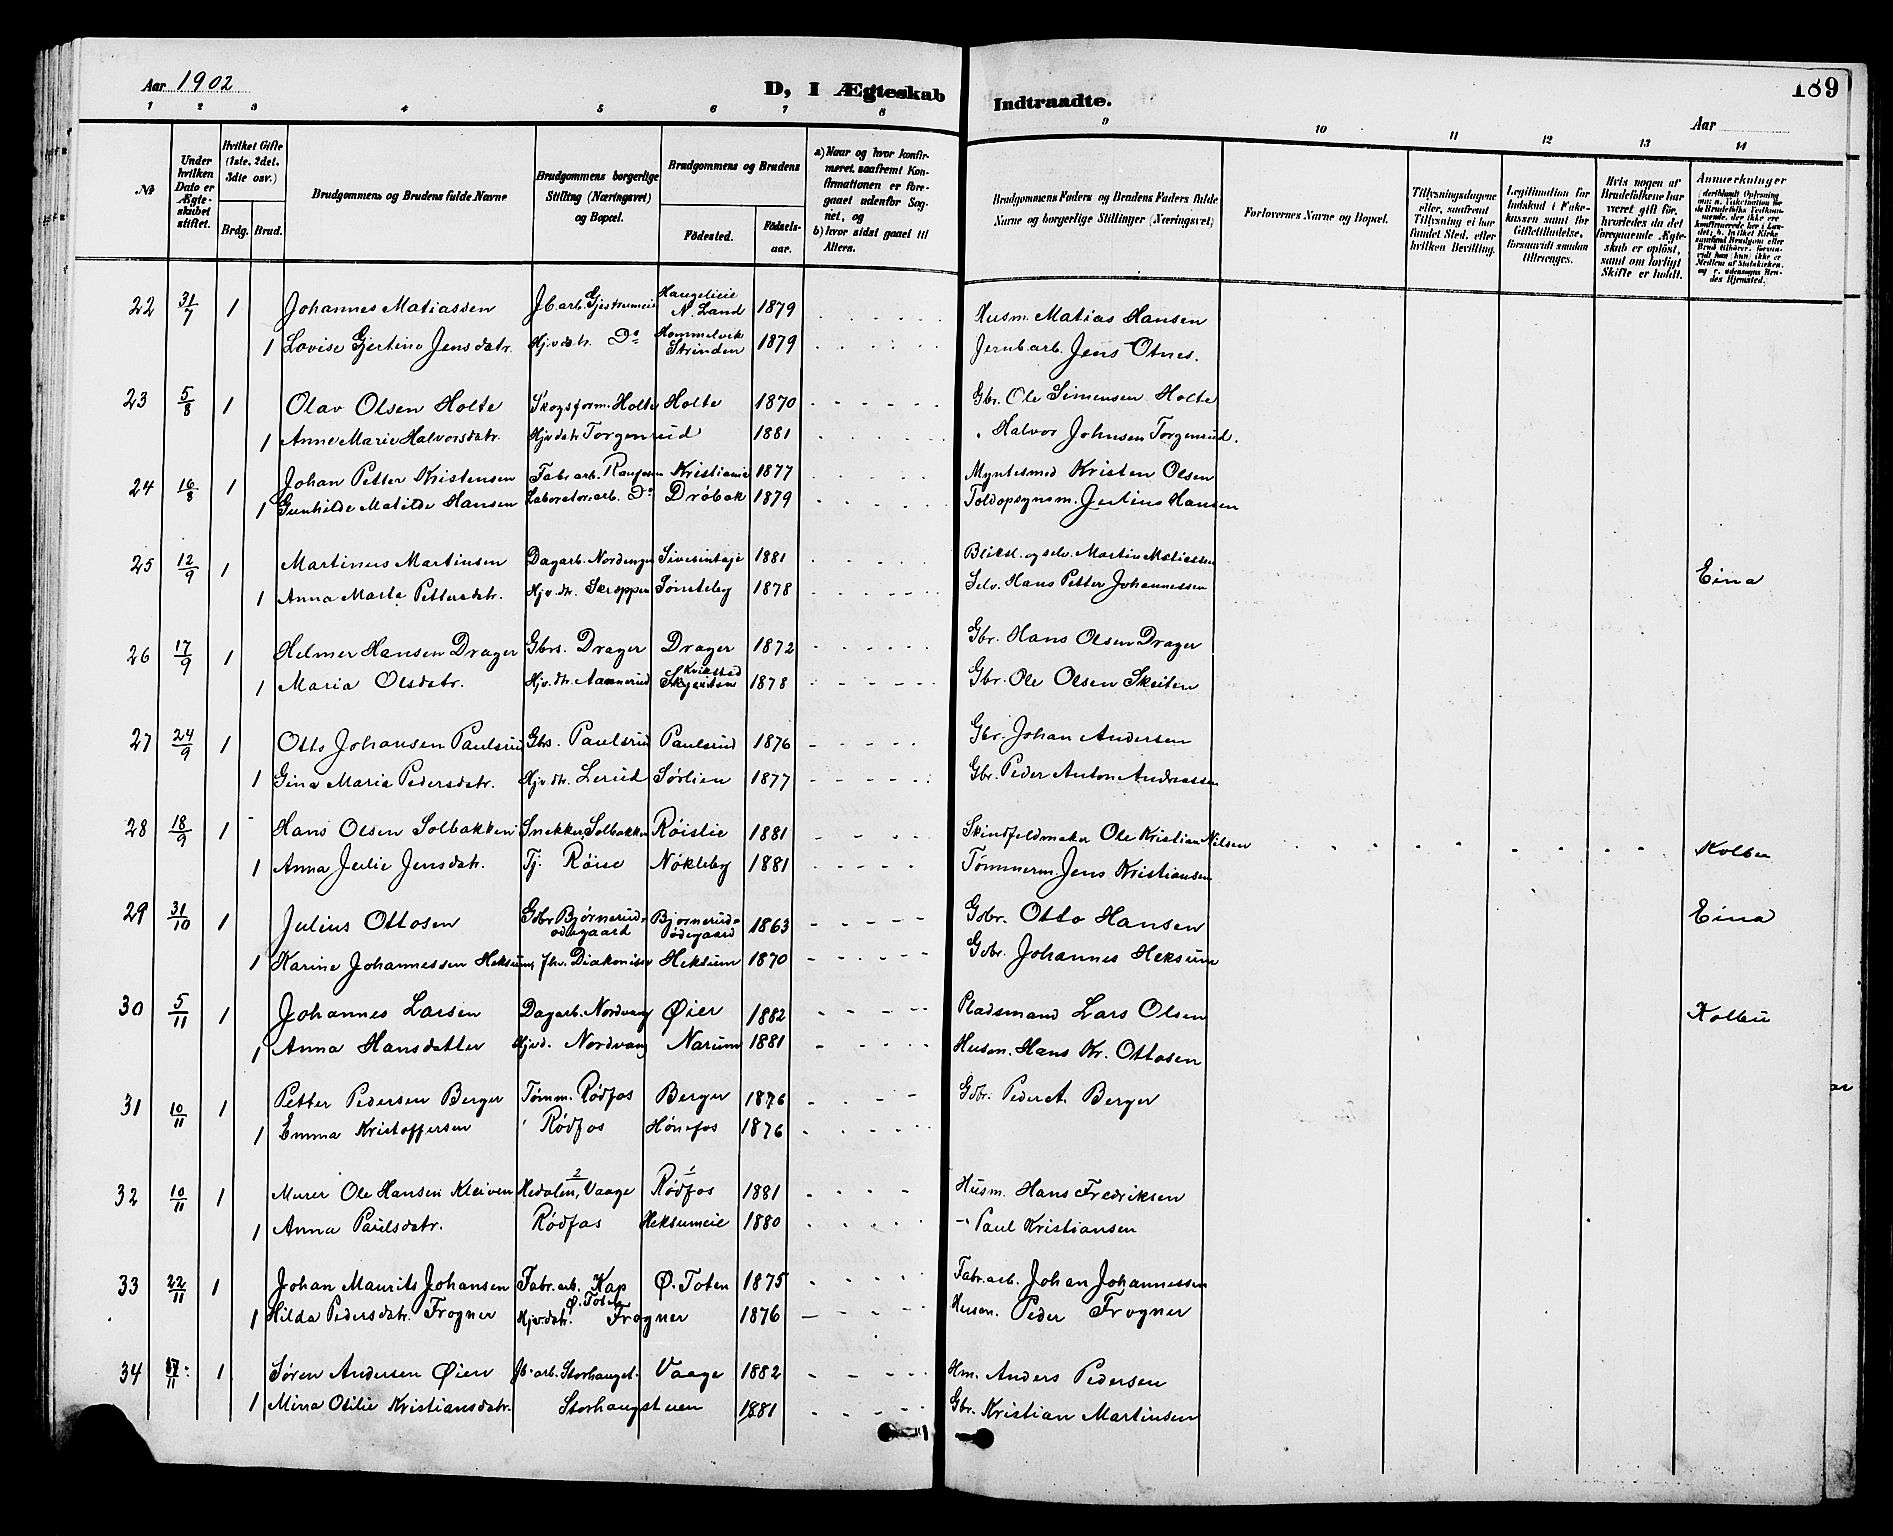 Aar 1902
D, I Ægteskab Indtraadte.
189
Aar
1 2 3 4 5 6 7 8 9 10 11 12 13 14
No
Under hvilken Dato er Ægteskabet stiftet.
Hvilket Gifte (1ste, 2det, 3die osv.)
Brdg. Brud.
Brudgommens og Brudens fulde Navne
Brudgommens borgerlige Stilling (Næringsvei) og Bopæl.
Brudgommens og Brudens
Fødested.
Fødselsaar.
a) Naar og hvor konfirmeret, saafremt Konfirmationen er foregaaet udenfor Sognet, og
b) hvor sidst gaaet til Alters.
Brudgommens Faders og Brudens Faders fulde Navne og borgerlige Stillinger (Næringsvei)
Forlovernes Navne og Bopæl.
Tillysningsdagene eller, saafremt Tillysning ei har fundet Sted, efter hvilken Bevilling.
Legitimation for Indskud i Enkekassen samt for Giftetilladelse, forsaavidt saadan tiltrænges.
Hvis nogen af Brudefolkene har været gift før, hvorledes da det foregaaende Ægteskab er opløst, samt om lovligt Skifte er holdt.
Anmerkninger
22 31/7 1 Johannes Matiassen Jb.arb. Gjestrumeie Haugelieie N. Land 1879 Husm. Matias Hansen
1 Lovise Gjertine Jensdatr. Hjvdatr. Do Hommelvik Strinden 1879 Jernb.arb. Jens Otnes.
23 5/8 1 Olav Olsen Holte Skogsform. Holte Holte 1870 Gbr. Ole Simensen Holte
1 Anne Marie Halvorsdatr. Hjvdatr Torgenrud 1881 " Halvor Johnsen Torgenrud.
24 16/8 1 Johan Petter Kristensen Fabr.arb. Raufossen Kristiania 1877 Myntesmed Kristen Olsen
1 Gunhilde Matilde Hansen Laboratoriearb. Do Drøbak 1879 Toldopsynsm. Julius Hansen
25 12/9 1 Martinus Martinsen Dagarb. Nordengen Sivesindeje 1881 Bliksl. og selv. Martin Matiassen Eina
1 Anna Marta Pettersdatr. Hjv.dtr. Skroppen Sønsteby 1878 Selv. Hans Petter Johannessen
26 17/9 1 Helmer Hansen Drager Gbrs. Drager Drager 1872 Gbr. Hans Olsen Drager
1 Maria Olsdatr. Hjv.dtr. Aannerud Kvikstad Skjeiten 1878 Gbr. Ole Olsen Skeiten
27 24/9 1 Otto Johansen Paulsrud Gbs. Paulsrud Paulsrud 1876 Gbr. Johan Andersen
1 Gina Maria Pedersdatr. Hjv.dtr. Lerud Sørlien 1877 Gbr. Peder Anton Andreassen
28 18/9 1 Hans Olsen Solbakken Snekker, Solbakken Røislie 1881 Skindfeldmaker Ole Kristian Nilsen Kolbu
1 Anna Julie Jensdatr. Tj. Røise Nøkleby 1881 Tømmerm. Jens Kristiansen
29 31/10 1 Julius Ottosen Gdbr Bjørnerudødegaard Bjørnerudødegaard 1863 Gdbr. Otto Hansen Eina
1 Karine Johannessen Heksum, fhv. Diakonisse Heksum 1870 Gdbr. Johannes Heksum
30 5/11 1 Johannes Larsen Dagarb. Nordvang Øier 1882 Pladsmand Lars Olsen Kolbu
1 Anna Hansdatter Hjvd. Nordvang Narum 1881 Husm. Hans Kr. Ottosen
31 10/11 1 Petter Pedersen Berger Tømm. Rødfos Berger 1876 Gdbr. Peder A. Berger
1 Emma Kristoffersen " Rødfos Hønefos 1876
32 10/11 1 Murer Ole Hansen Kleiven Hedalen, Vaage 2 Rødfos 1 1881 Husm. Hans Fredriksen
1 Anna Paulsdatr. Rødfos Heksumeie 1880 -" Paul Kristiansen
33 22/11 1 Johan Maurits Johansen Fabr.arb. Kap Ø. Toten Ø. Toten 1875 Fabr.arb. Johan Johannessen
1 Hilda Pedersdatr. Frogner Hjvdatr. Frogner 1876 Husm. Peder Frogner
34 17/11 1 Søren Andersen Øien Jb.arb. Storhauget. Vaage 1882 Hm. Anders Pedersen
1 Mina Otilie Kristiansdatr. Storhaugstuen 1881 Gbr. Kristian Martinsen